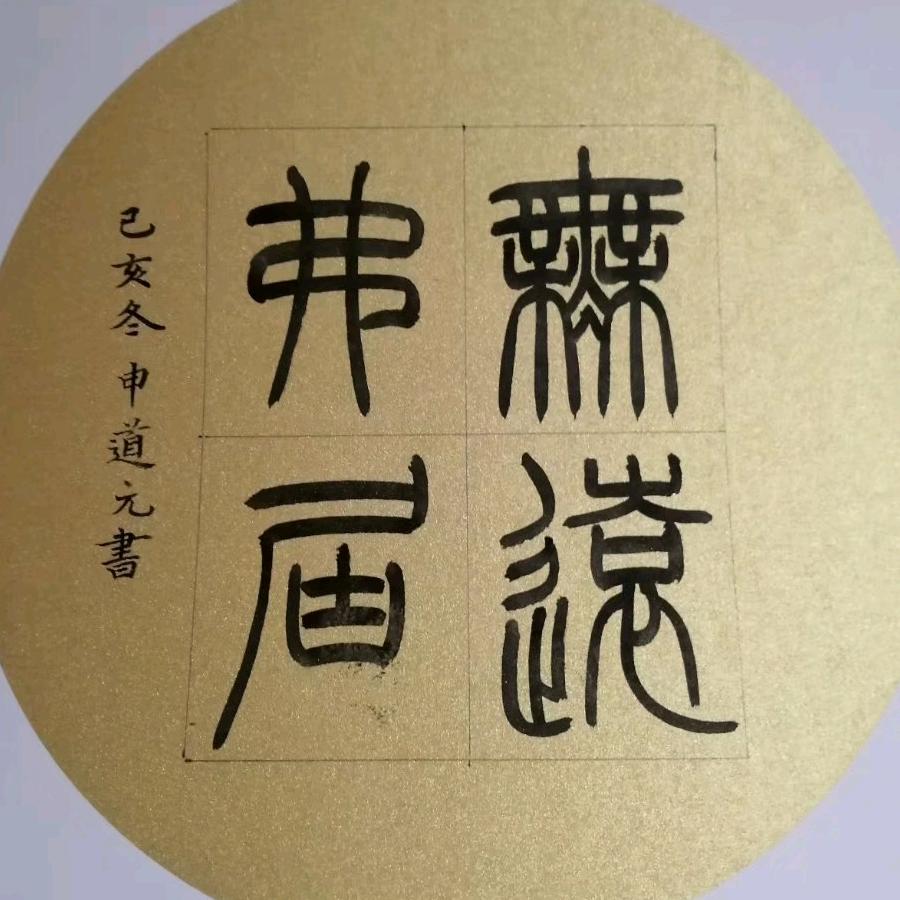 無遠
弗届
己亥冬申道元書